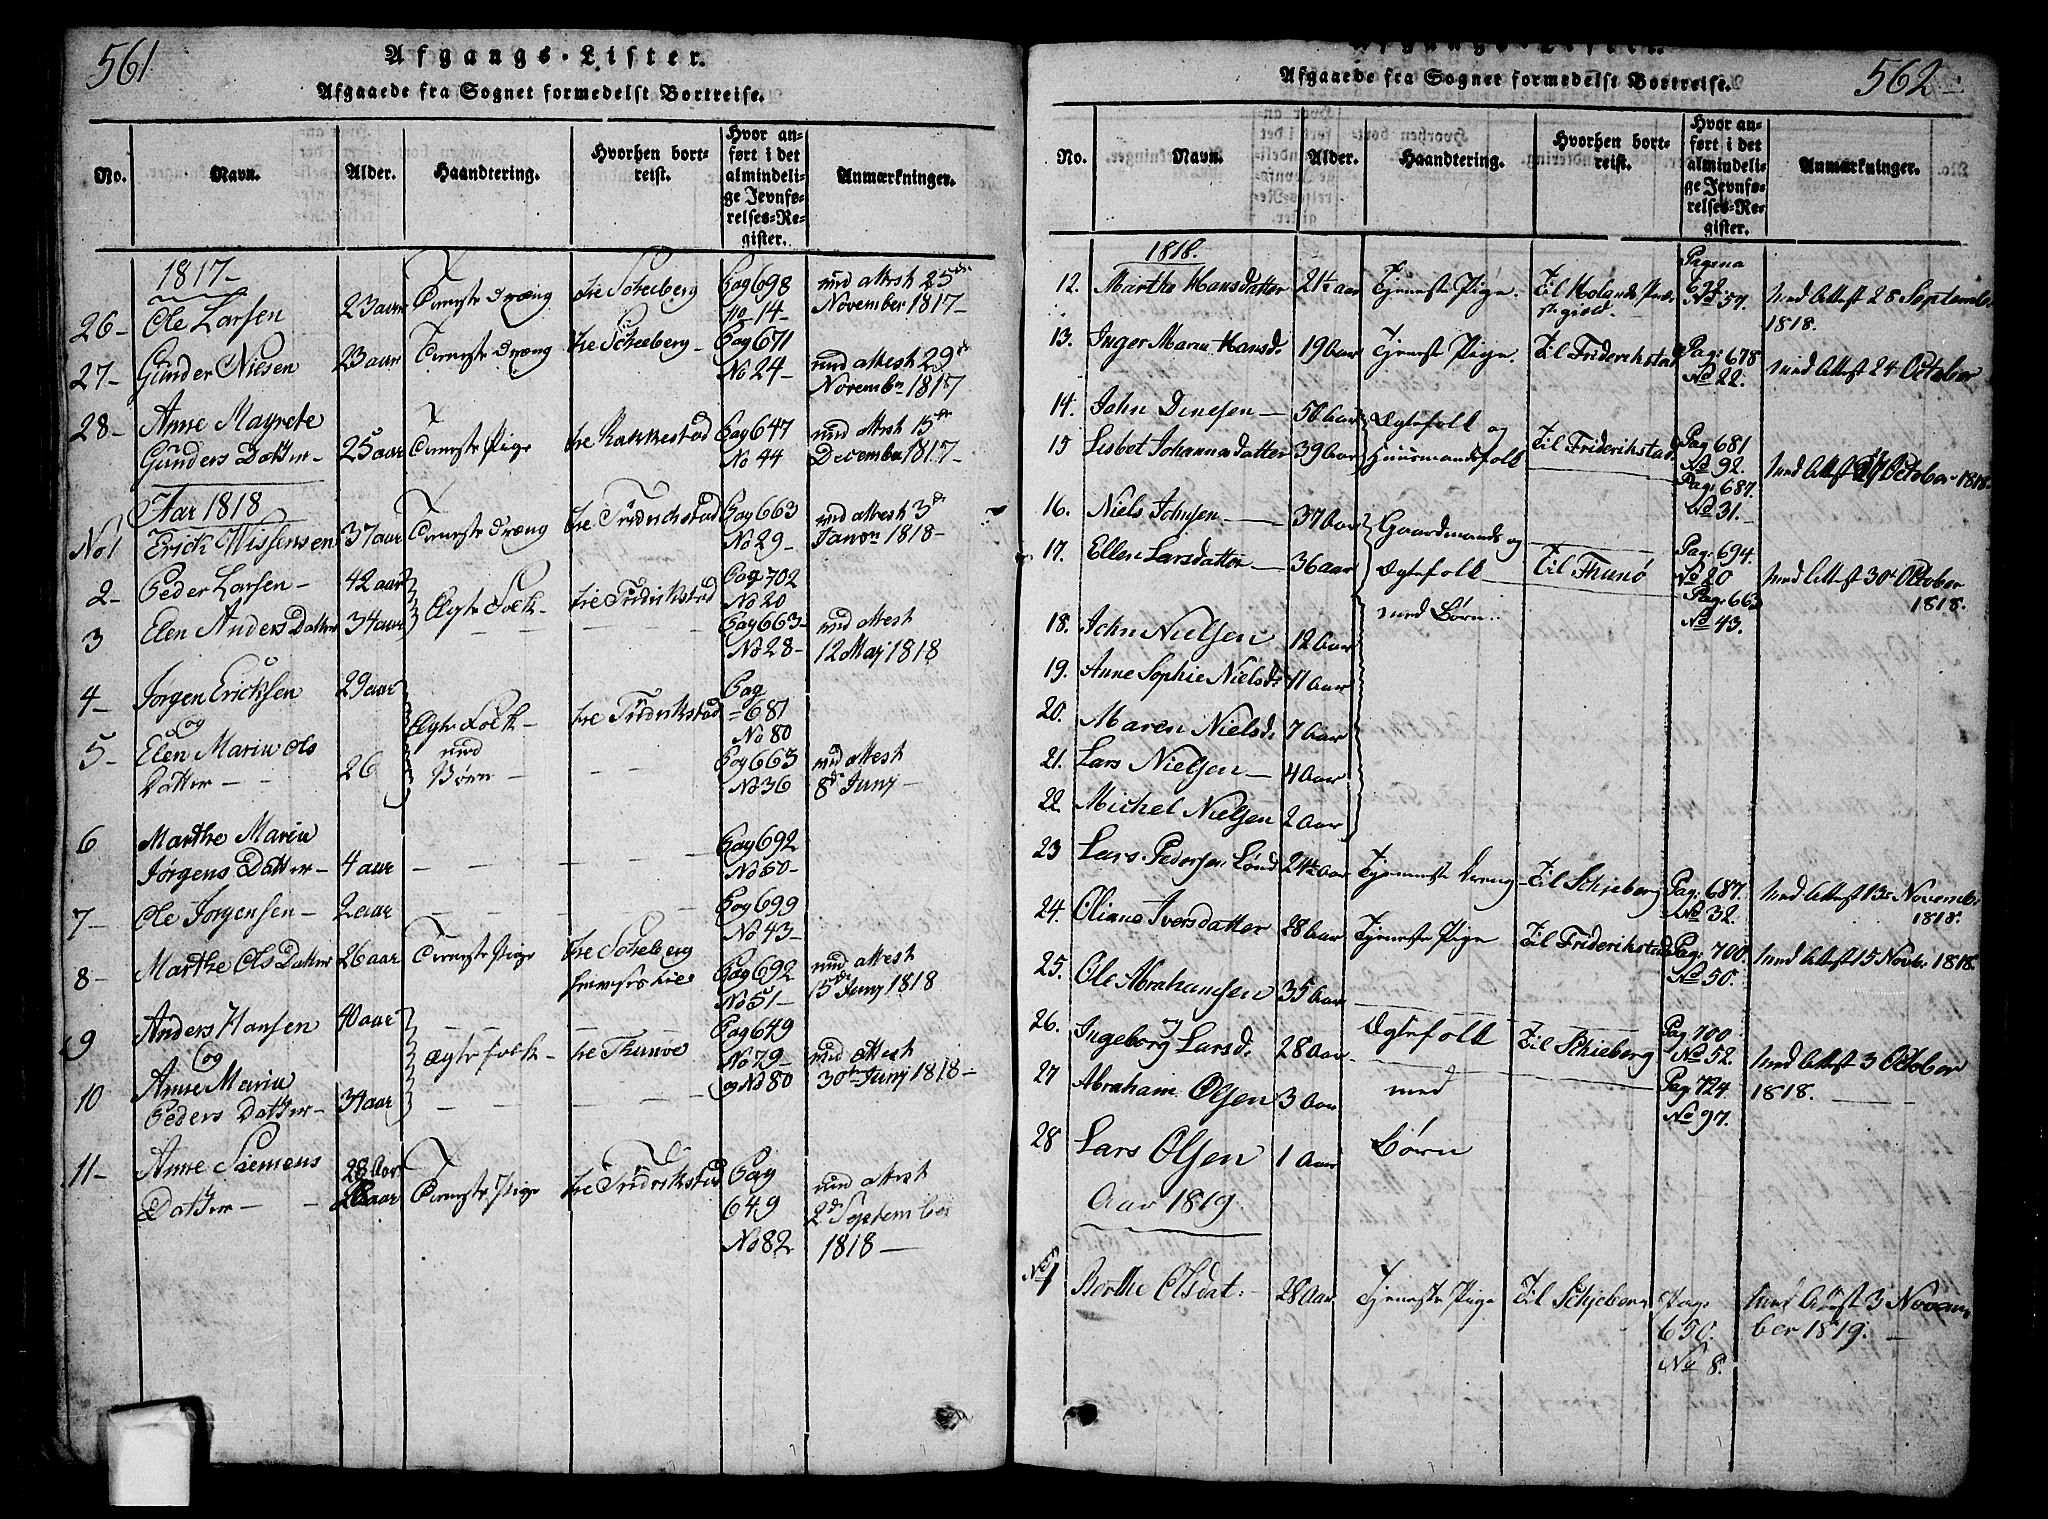 561
Afgangs-Lister.
Afgaaede fra Sognet formedelst Bortreise.
No. Navn. Alder. Haandtering. Hvorhen bortreist. Hvor anført i det almindelige Jevnførelses-Register. Anmærkninger.
1817
26 Ole Larsen 23 aar Tieneste Dræng Pag 698 No 14 med Attest 25de November 1817
27 Gunder Nielsen 23 aar Tieneste Dræng Pag 671 No 24 med Attest 29de Novembr 1817
28 Anne Magrete Gunders Datter 25 aar Tieneste Pige Rakkestad Pag 647 No 44 med Attest 15de December 1817
Aar 1818
No 1 Erick 37 aar Tieneste Dræng Pag 663 No 29 med Attest 3de 1818
2 Peder Larsen 42 aar Ægte Folk Pag 702 No 20
3 Elen Anders Datter 34 aar Pag 663 No 28 med Attest 12 Maj 1818
4 Jørgen Ericksen 29 aar Pag 681 No 80
og
5 Elen Maria Ols Datter 26 Ægte Folk med Børn Pag 663 No 36 med Attest 8de Junj
6 Marthe Maria Jørgens Datter 4 aar Pag 692 No 50
7 Ole Jørgensen 2 aar Pag 699 No 43
8 Marthe Ols Datter 26 aar Tieneste Pige Pag 692 No 51 med Attest 15de Junj 1818
9 Anders Hansen 40 aar Ægte Folk Pag 649 No 79
og
10 Anne Maria Peders Datter 34 aar og No 80 med Attest 30te Junj 1818
11 Anne Siemens Datter 28 Aar Tieneste Pige Pag 649 No 82 med Attest 2de September 1818
562
Afgangs-Lister.
Afgaaede fra Sognet formedelst Bortreise.
No. Navn. Alder. Haandtering. Hvorhen bortreist. Hvor anført i det almindelige Jevnførelses-Register. Anmærkninger.
1818.
12. Marthe Hansdatter 21½ aar Tjeneste Pige. Til Holands Præstegield Pagena 692 No 57. Med Attest 28 September 1818.
13. Inger Marie Hansd. 19 Aar Tjeneste Pige. Til Friderikstad Pag: 678 No 22. Med Attest 24 October
14. John Dinesen 50 Aar Ægtefolk og
15 Lisbet Johannesdatter 39 Aar Huusmandsfolk Til Friderikstad Pag 681 No 92. Pag: 687. No 31. Med Attest October 1818.
16. Niels Johnsen 37 Aar Gaardmands og
17. Ellen Larsdatter 36 aar Ægtefolk med Børn. Til Thunø Pag: 694. No 20 Pag: 663 No 43. Med Attest 30te October 1818.
18. John Nielsen 12 Aar
19. Anne Sophie Nielsd. 11 Aar
20. Maren Nielsd. 7 Aar
21. Lars Nielsen 4 Aar
22. Michel Nielsen 2 Aar
23 Lars Pedersen 24½ Aar Tjeneste Dreng Til Schjeberg Pag: 687. No 32. Med Attest 13de November 1818.
24. Oliana Iversdatter 28 Aar Tjeneste Pige Til Friderikstad Pag: 700. No 50. Med Attest 15 Novbr: 1818.
25. Ole Abrahamsen 35 Aar
og
26. Ingeborg Larsd. 28 Aar Ægtefolk Til Schieberg Pag 700. No 52. Med Attest 3 October 1818.
27 Abraham Olsen 3 Aar med Pag 724. No 97.
28 Lars Olsen 1 Aar Børn
Aar 1819.
No 1 Berthe Olsdat: 28 Aar Tjeneste Pige Til Schjeberg Pag: 650. No 8. Med Attest 3 November 1819.